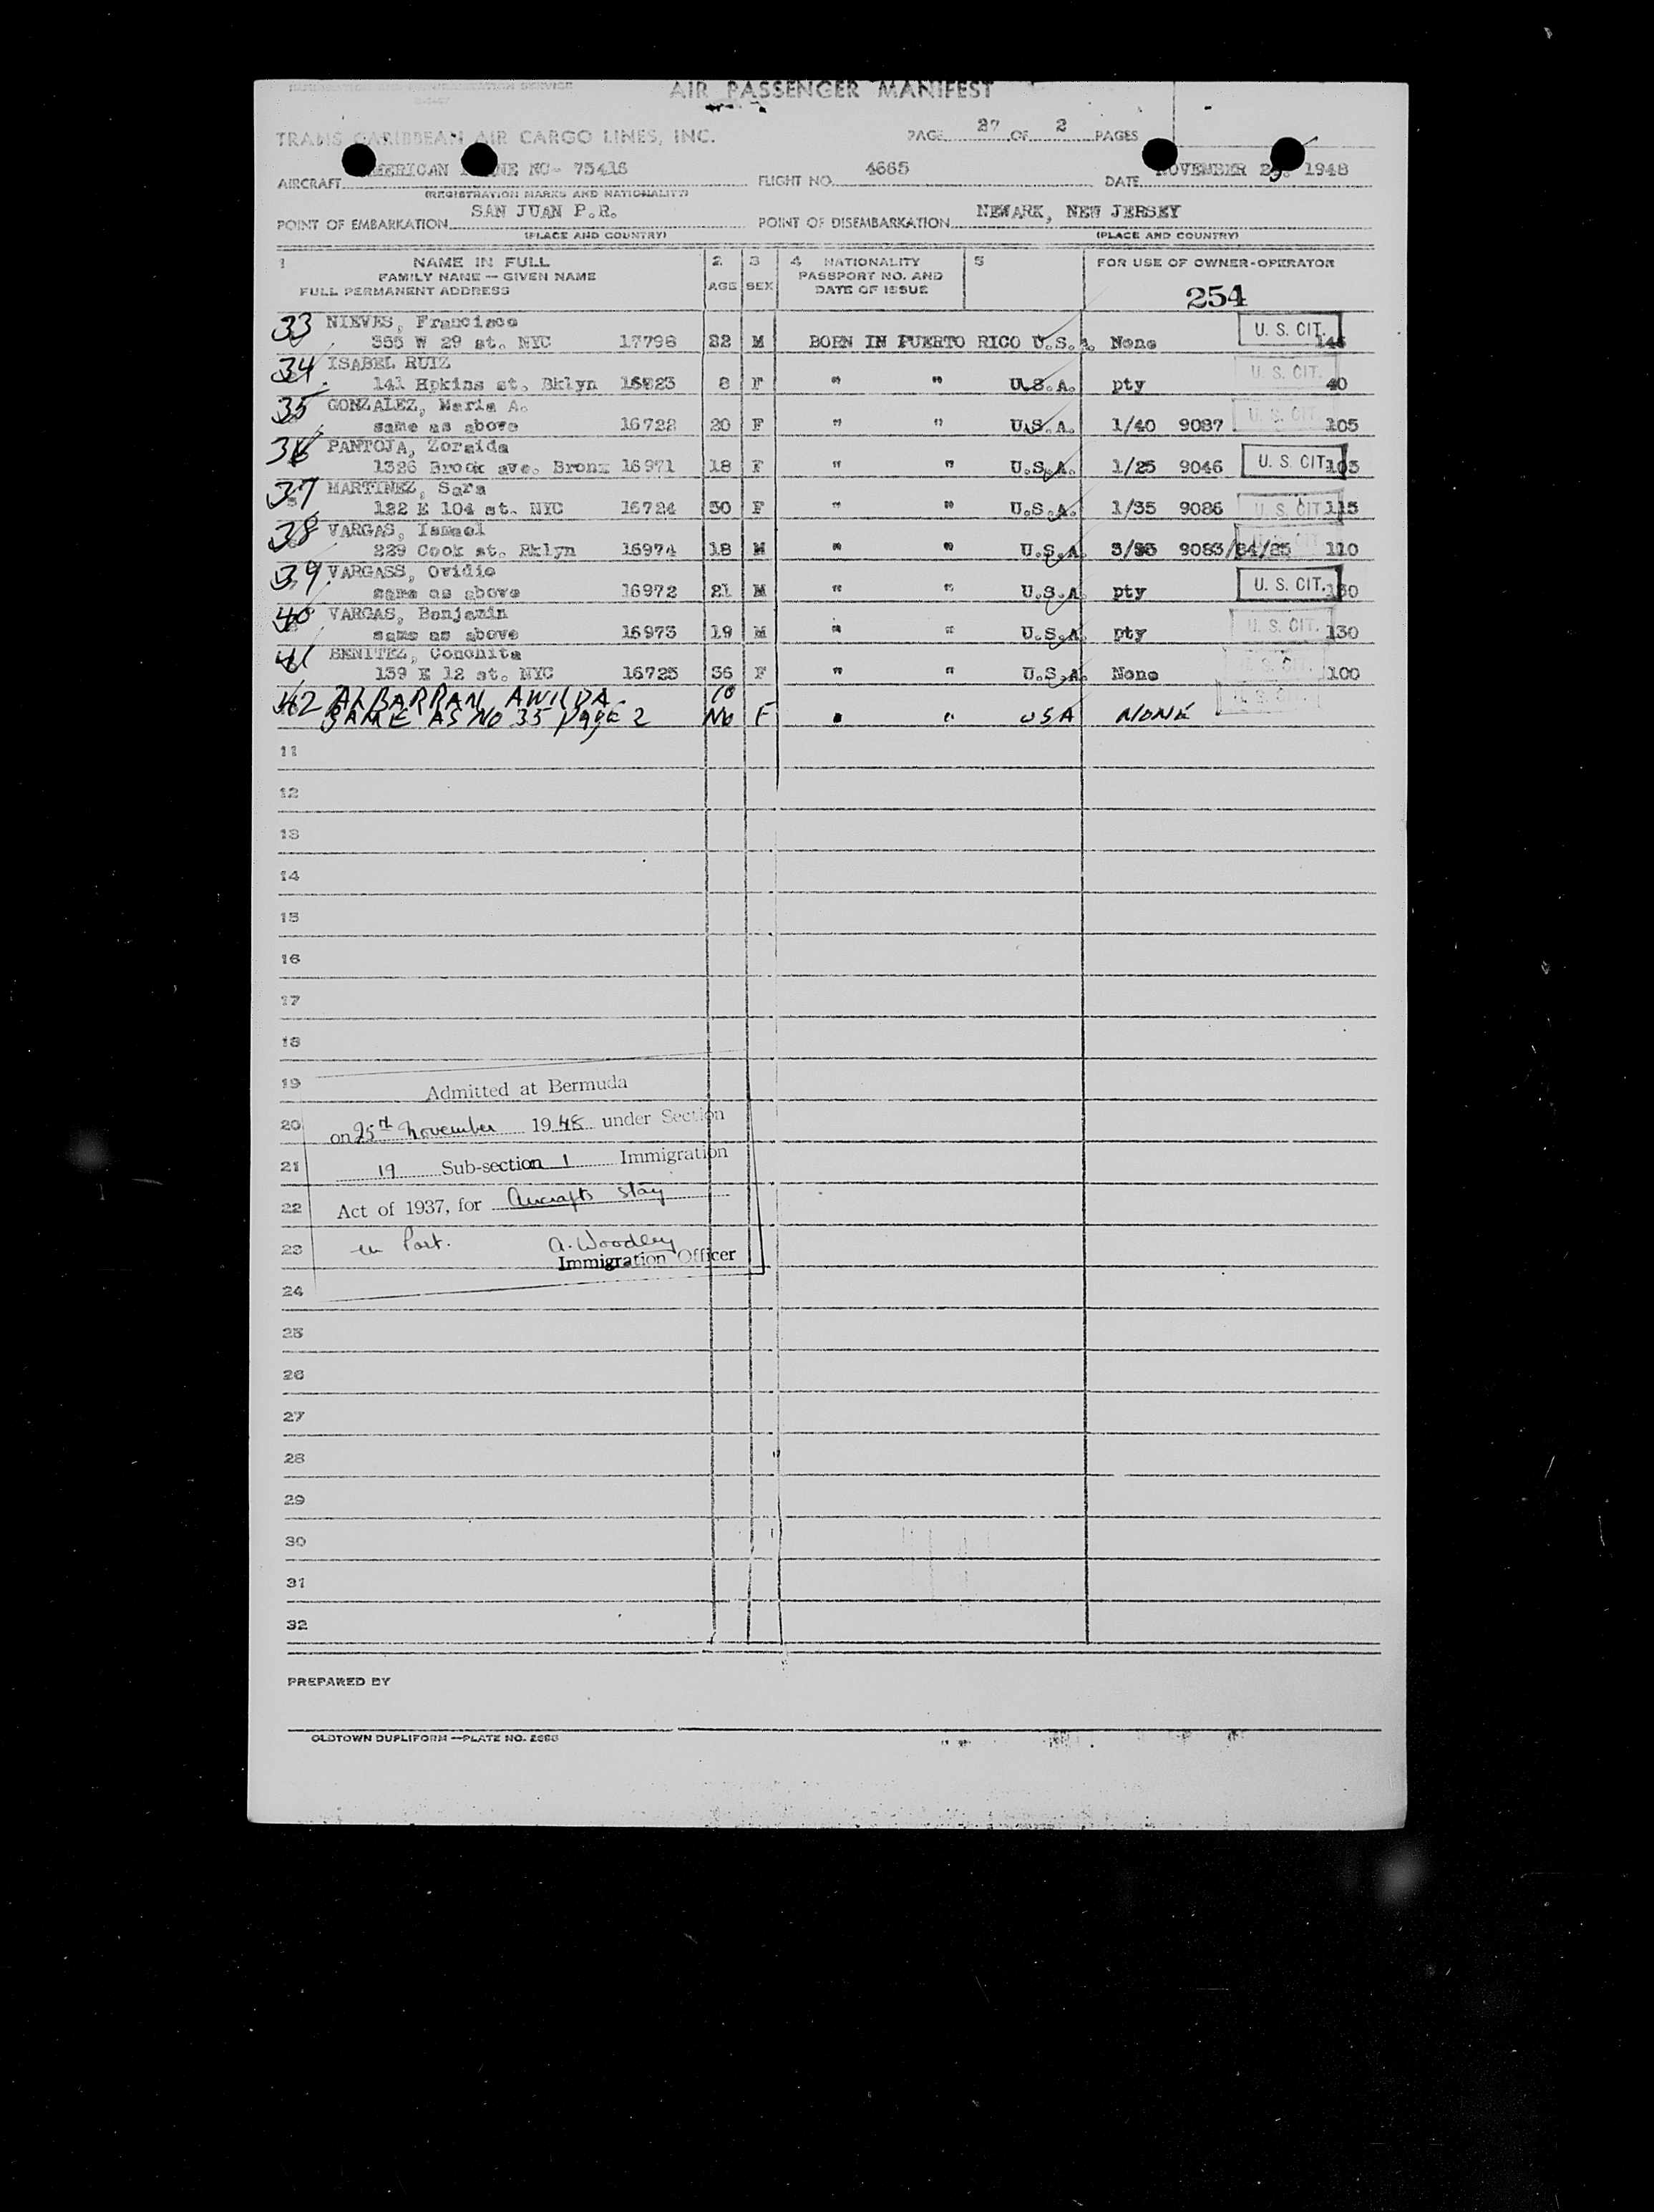 AIR PASSENGER MANIFEST
TRANS CARIBBEAN AIR CARGO LINES, INC. PAGE 27 OF 2 PAGES
AIRCRAFT NC- 75416 FLIGHT NO. 4665 DATE NOVEMBER 1948
(REGISTRATION MARKS AND NATIONALITY)
POINT OF EMBARKATION SAN JUAN P.R. POINT OF DISEMBARKATION NEWARK, NEW JERSEY
(PLACE AND COUNTRY) (PLACE AND COUNTRY)
1 NAME IN FULL 2 3 4 NATIONALITY 5 FOR USE OF OWNER-OPERATOR
FAMILY NAME — GIVEN NAME AGE SEX PASSPORT NO. AND
FULL PERMANENT ADDRESS DATE OF ISSUE 254
33 NIEVES, Francisco U. S. CIT.
355 W 29 st. NYC 17796 22 M BORN IN PUERTO RICO U.S.A. None 145
34 ISABEL RUIZ U. S. CIT.
141 Hpkins st. Bklyn 16823 8 F " " U.S.A. pty 40
35 GONZALEZ, Maria A. U. S. CIT.
same as above 16722 20 F " " U.S.A. 1/40 9087 105
36 PANTOJA, Zoraida
1326 Brook ave. Bronx 16971 18 F " " U.S.A. 1/25 9046 U. S. CIT. 103
37 MARTINEZ, Sara
122 E 104 st. NYC 16724 30 F " " U.S.A. 1/35 9086 U. S. CIT. 115
38 VARGAS, Ismael
229 Cook st. Bklyn 16974 18 M " " U.S.A. 3/93 9083/84/85 110
39 VARGASS, Ovidio
same as above 16972 21 M " " U.S.A. pty U. S. CIT. 130
40 VARGAS, Benjamin
same as above 16973 19 M " " U.S.A. pty U. S. CIT. 130
41 BENITEZ, Conchita
139 E 12 st. NYC 16725 36 F " " U.S.A. None U. S. CIT. 100
42 ALBARRAN AWILDA 10 U. S. CIT.
SAME AS NO 35 page 2 Mo F " " USA NONE
11
12
13
14
15
16
17
18
19 Admitted at Bermuda
20 on 25th November 1948 under Section
21 19 Sub-section 1 Immigration
22 Act of 1937, for Aircrafts stay
23 in Port. A. Woodley
Immigration Officer
24
25
26
27
28
29
30
31
32
PREPARED BY
OLDTOWN DUPLIFORM — PLATE NO.